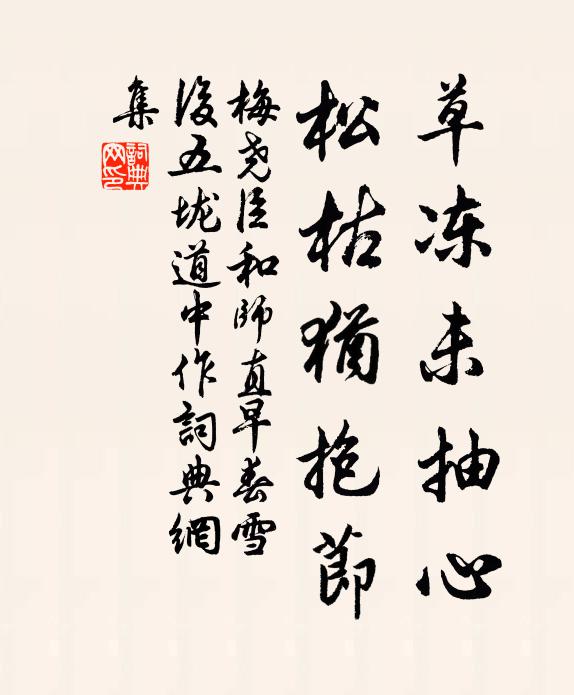 草冻未抽心
松枯猶抱節
梅尧臣和師直早春雪
後五垅道中作詞典網
集
詞典
网印